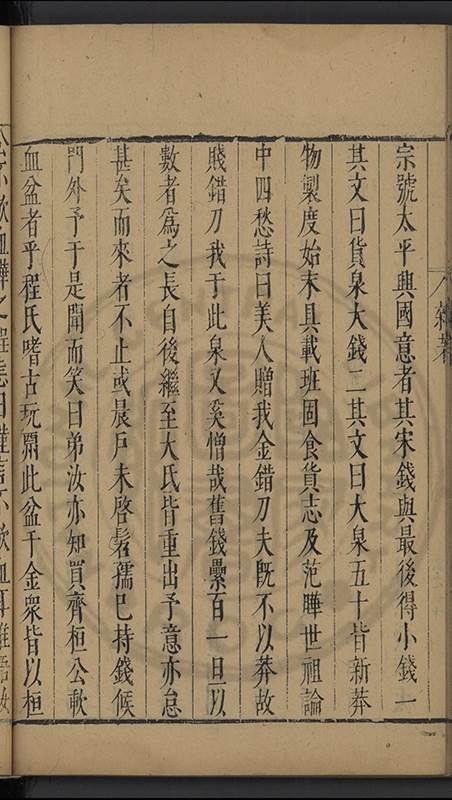 宗號太平興國意者其宋錢與最後得小錢一
其文曰貨泉大錢二其文曰大泉五十皆新莽
物製度始末具載班固食貨志及范曄世祖論
中四愁詩曰美人贈我金錯刀夫既不以莽故
賤錯刀我于此泉又奚憎哉舊錢纍百一旦以
數者為之長自後繼至大氏皆重出予意亦怠
甚矣而來者不止或晨戶未啓髫孺已持錢候
門外予于是聞而笑曰弟汝亦知買齊桓公歃
血盆者乎程氏嗜古玩鬻此盆千金衆皆以桓